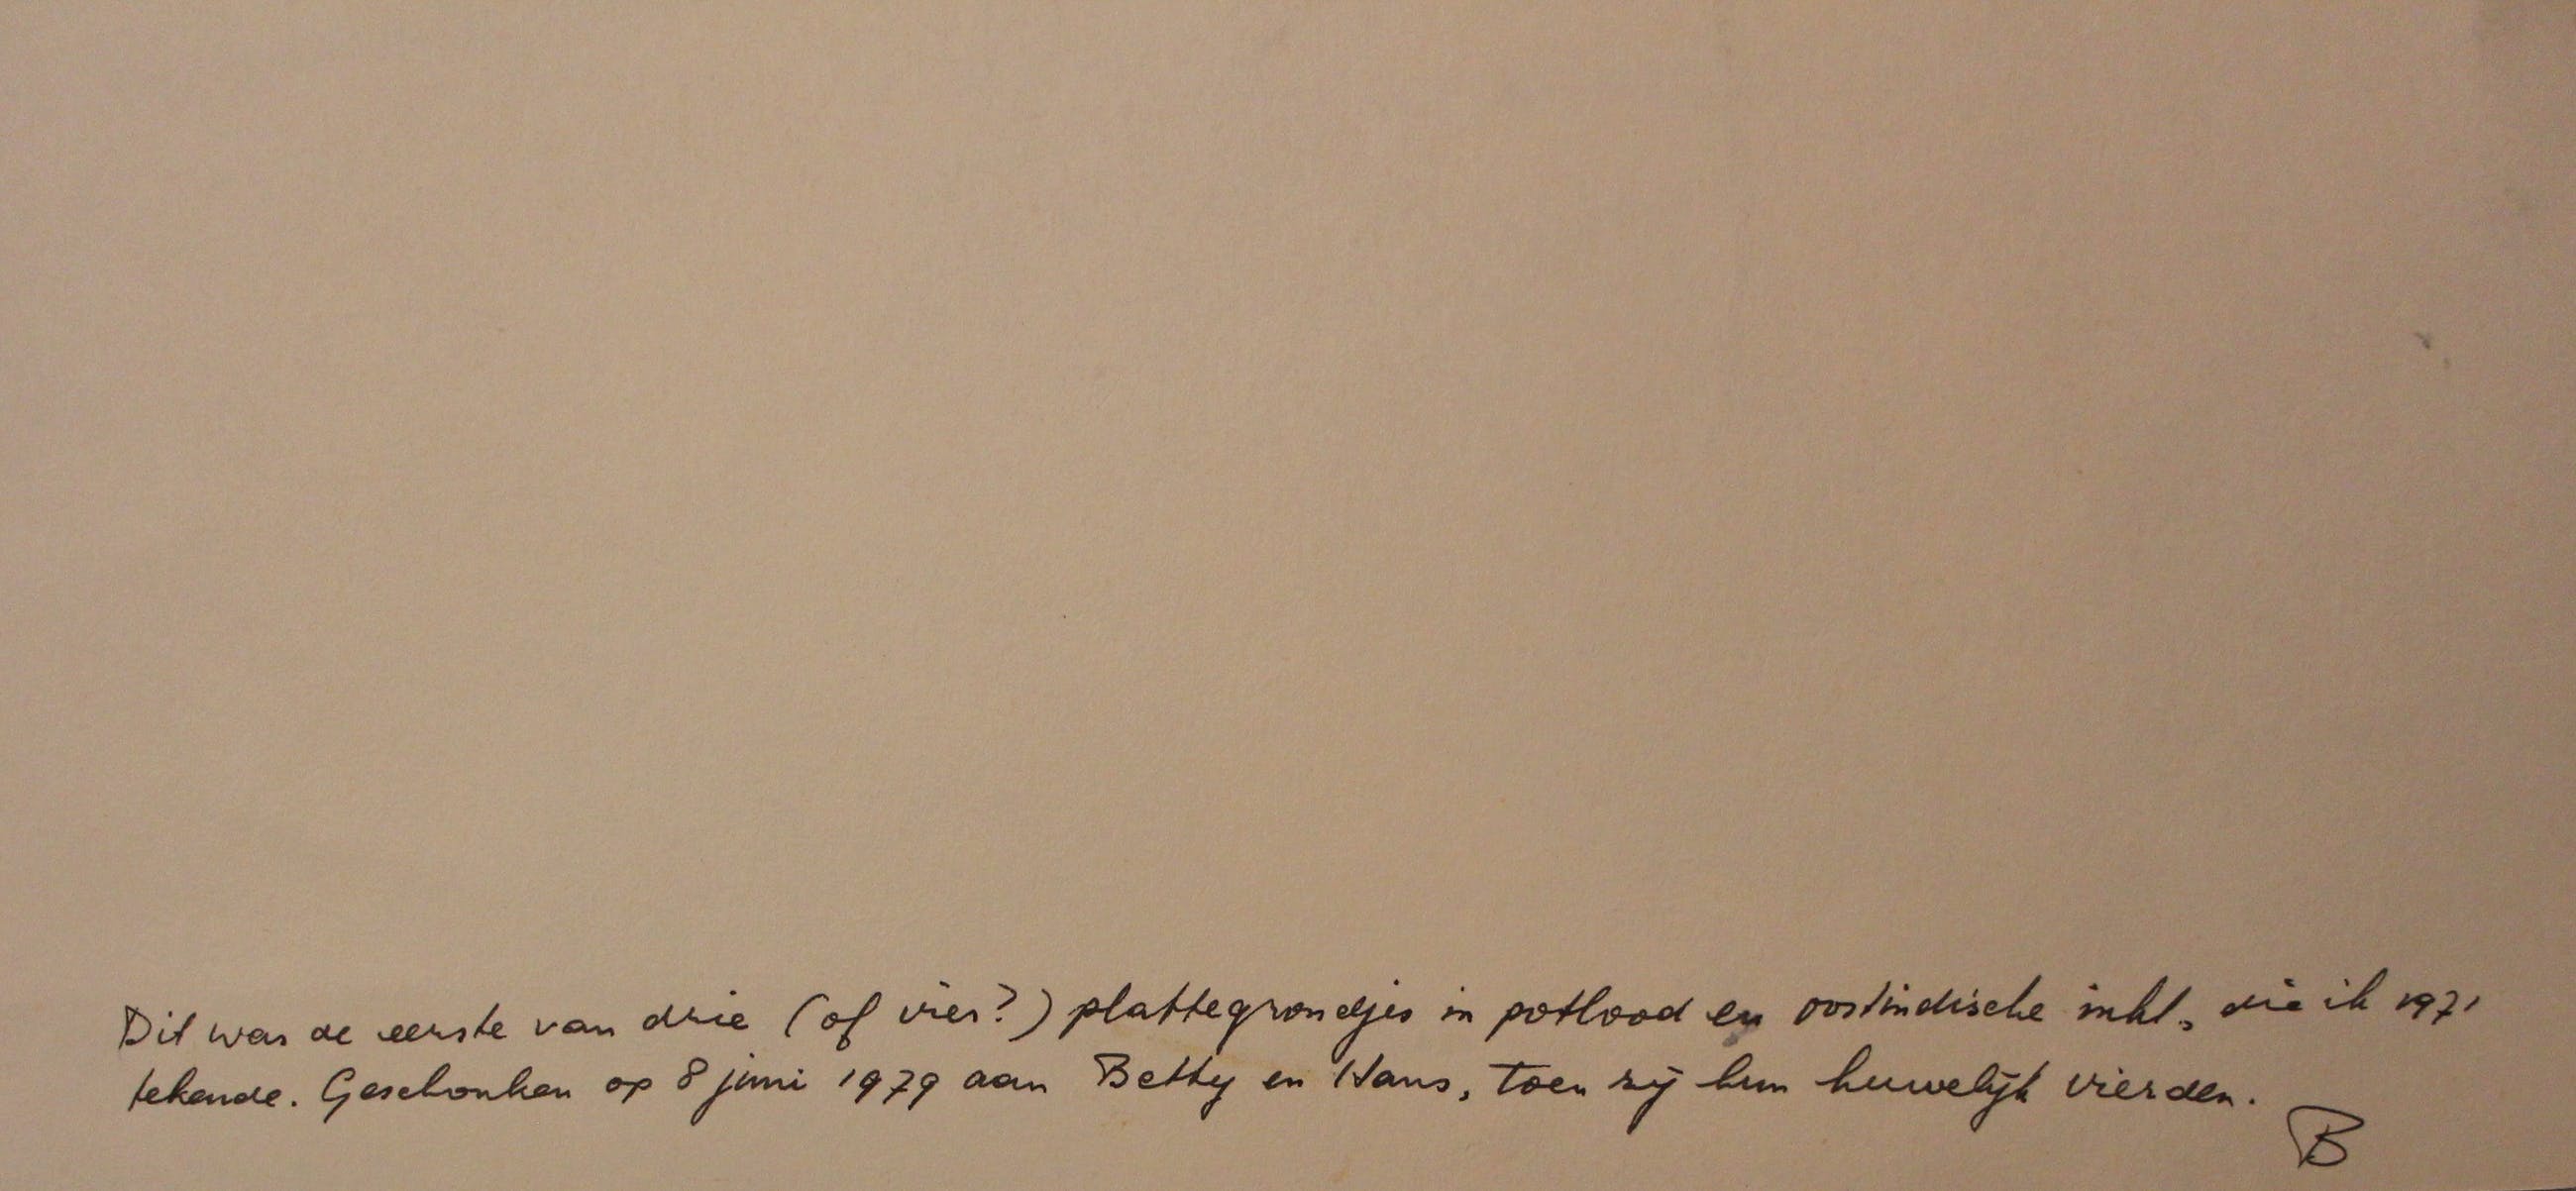 Dit was de eerste van drie (of vier?) plattegrondjes in potlood en oostindische inkt, die ik 1971
tekende. Geschonken op 8 juni 1979 aan Betty en Hans, toen zij hun huwelijk vierden.
B